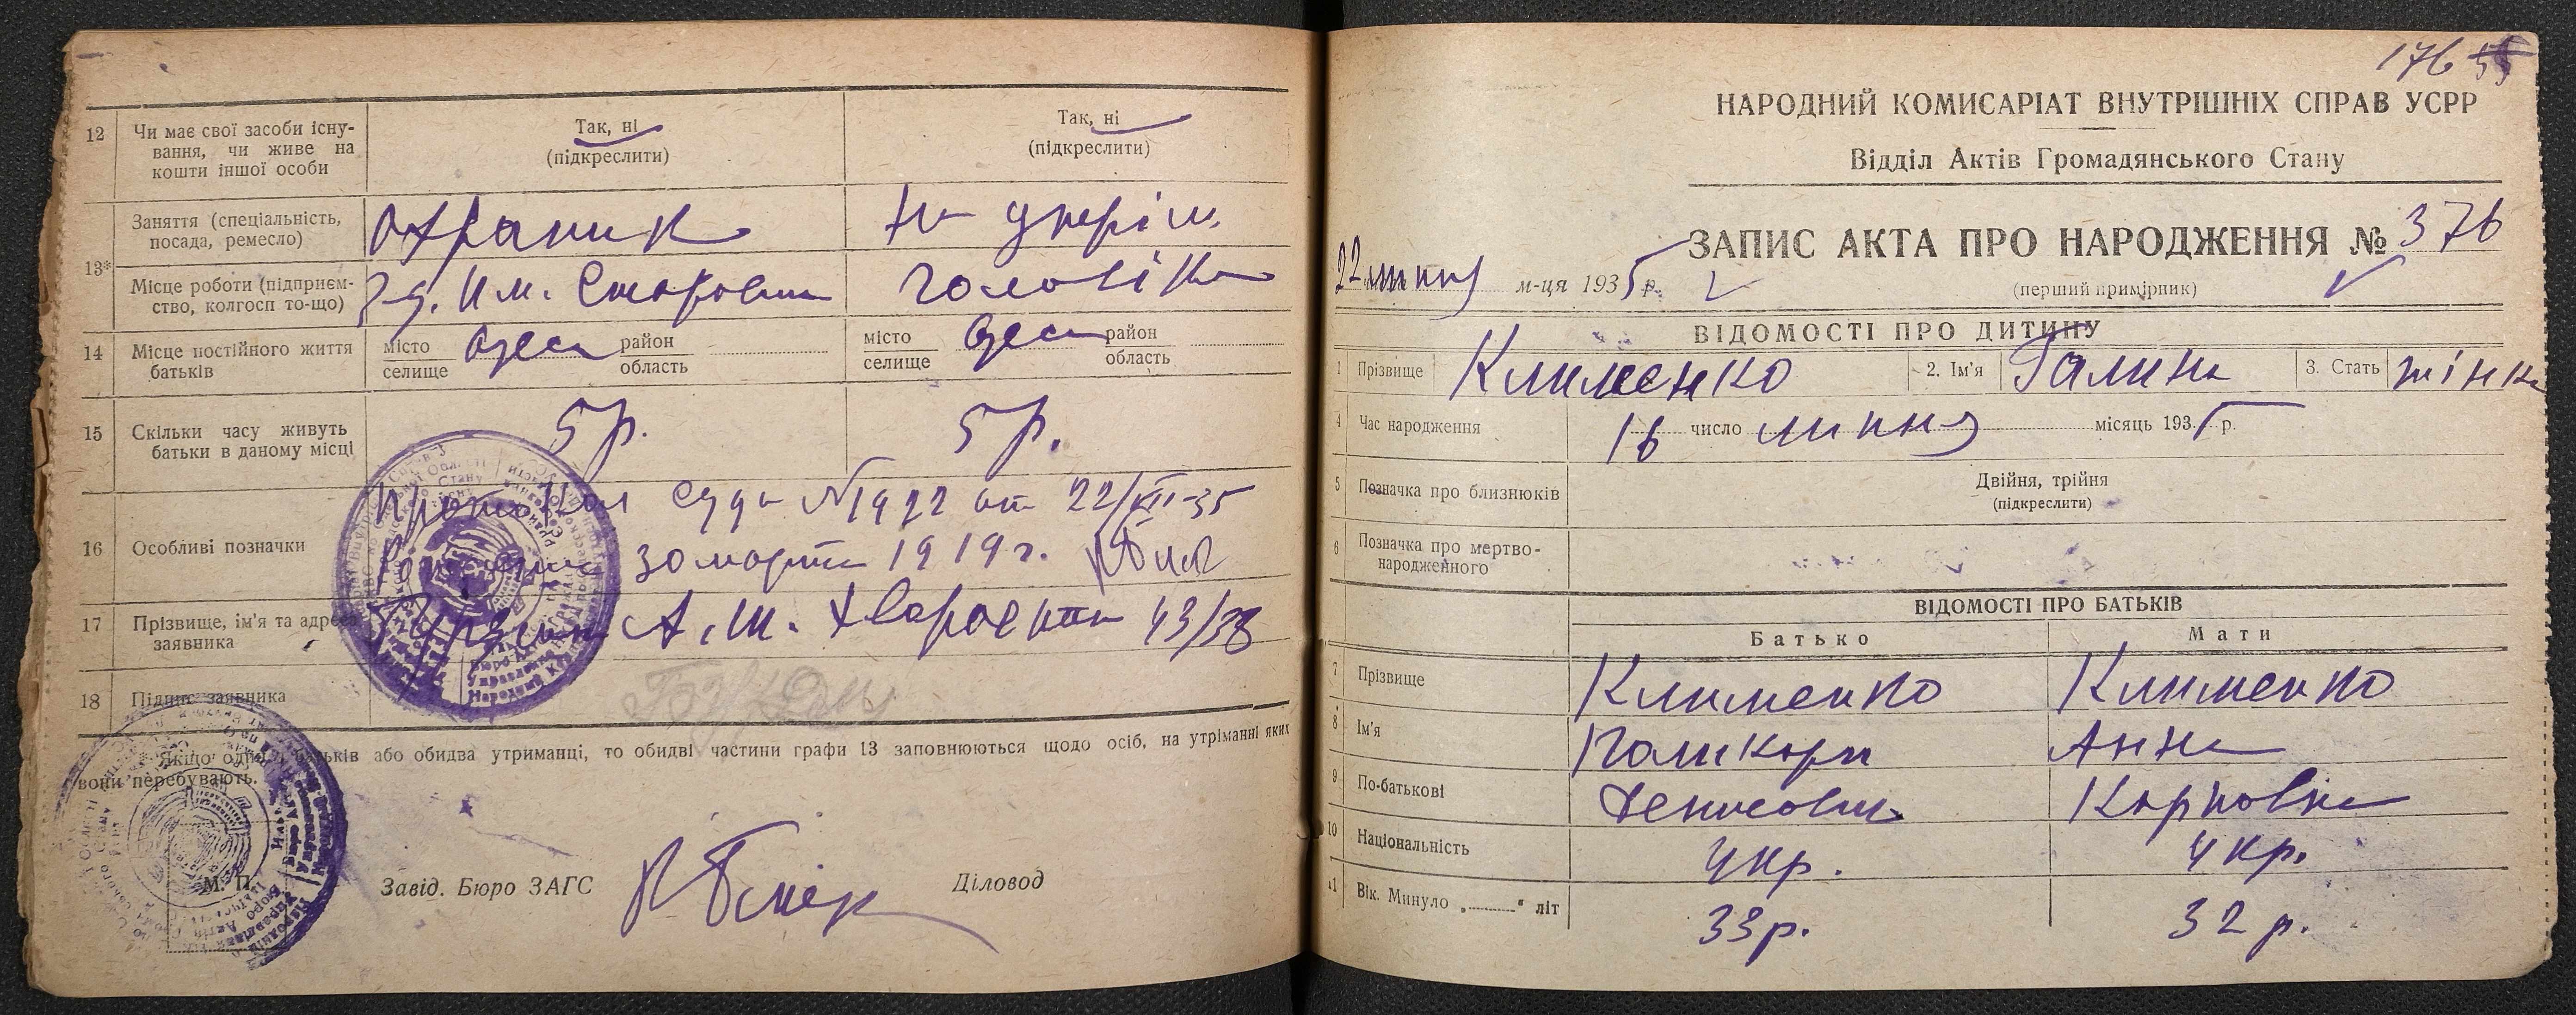 12 Чи має свої засоби існу-
вання, чи живе на
кошти іншої особи
Так, ні
(підкреслити)
Так, ні
(підкреслити)
13*
Заняття (спеціальність,
посада, ремесло)
Охраник
на утрім.
Місце роботи (підприєм-
ство, колгосп то-що)
Им.
чоловіка
14 Місце постійного життя
батьків
місто
селище
Одеса
район
область
місто
селище
Одеса
район
область
15 Скільки часу живуть
батьки в даному місці
5 р.
5 р.
16 Особливі позначки
Протокол суда № 1922 от 22/XII-35
30 марта 1919 г.
17 Прізвище, ім'я та адреса
заявника
А. Ш. 43/38
18 Підпис заявника
* Якщо один з батьків або обидва утриманці, то обидві частини графи 13 заповнюються щодо осіб, на утриманні яких
вони перебувають.
М. П.
Завід. Бюро ЗАГС
Діловод
176 55
НАРОДНИЙ КОМИСАРІАТ ВНУТРІШНІХ СПРАВ УСРР
Відділ Актів Громадянського Стану
ЗАПИС АКТА ПРО НАРОДЖЕННЯ № 376
22 липня м-ця 1935 р.
(перший примірник)
ВІДОМОСТІ ПРО ДИТИНУ
1 Прізвище Клименко 2. Ім'я Галина 3. Стать жінка
4 Час народження 16 число липня місяць 1935 р.
5 Позначка про близнюків
Двійня, трійня
(підкреслити)
6 Позначка про мертво-
народженного
ВІДОМОСТІ ПРО БАТЬКІВ
Батько Мати
7 Прізвище Клименко Клименко
8 Ім'я Поликарп Анна
9 По-батькові Денисович Карповна
10 Національність Укр. Укр.
11 Вік. Минуло „......“ літ 33 р. 32 р.